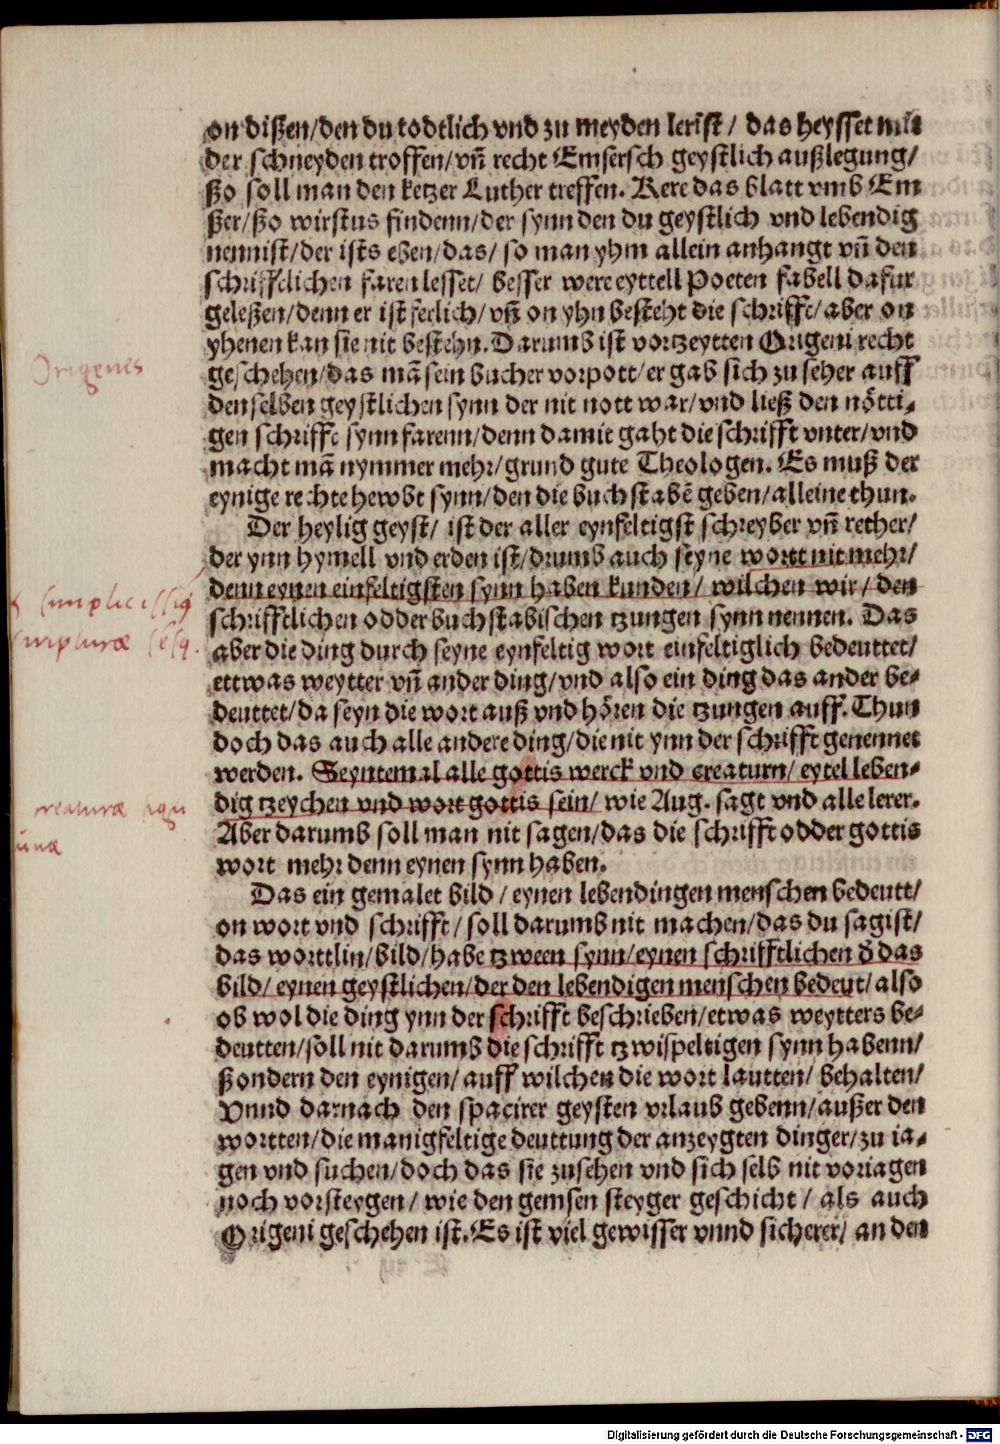 on dißen/den du todtlich vnd zu meyden lerist/ das heysset mit
der schneyden troffen/vñ recht Emsersch geystlich außlegung/
ßo soll man den ketzer Luther treffen. Kere das blatt vmb Em
ßer/ßo wirstus findenn/der synn den du geystlich vnd lebendig
nennist/der ists eben/das/ so man yhm allein anhangt vñ den
schrifftlichen faren lesset/ besser were eyttell Poeten fabell dafur
geleßen/denn er ist ferlich/vñ on yhn besteht die schrifft/aber on
yhenen kan sie nit bestehn. Darumb ist vortzeytten Origeni recht
geschehen/das mã sein bucher vorpott/er gab sich zu seher auff
den selben geystlichen synn der nit nott war/vnd ließ den nötti-
gen schrifft synn farenn/denn damit gaht die schrifft vnter/vnd
macht mã nymmer mehr/grund gute Theologen. Es muß der
eynige rechte hewbt synn/den die buchstabẽ geben/alleine thun.
Der heylig geyst/ ist der aller eynfeltigst schreyber vñ rether/
der ynn hymell vnd erden ist/drumb auch seyne wortt nit mehr/
denn eynen einfeltigsten synn haben kunden/ wilchen wir/ den
schrifftlichen odder buchstabischen tzungen synn nennen. Das
aber die ding durch seyne eynfeltig wort einfeltiglich bedeuttet/
ettwas weytter vñ ander ding/vnd also ein ding das ander be-
deuttet/da seyn die wort auß vnd hören die tzungen auff. Thun
doch das auch alle andere ding/die nit ynn der schrifft genennet
werden. Seyntemal alle gottis werck vnd creaturn/ eytel leben-
dig tzeychen vnd wort gottis sein/ wie Aug. sagt vnd alle lerer.
Aber darumb soll man nit sagen/das die schrifft odder gottis
wort mehr denn eynen synn haben.
Das ein gemalet bild / eynen lebendingen menschen bedeutt/
on wort vnd schrifft/ soll darumb nit machen/das du sagist/
das worttlin/bild/habe tzween synn/eynen schrifftlichen d̕ das
bild/ eynen geystlichen/der den lebendigen menschen bedeut/also
ob wol die ding ynn der schrifft beschrieben/etwas weytters be-
deutten/soll nit darumb die schrifft tzwispeltigen synn habenn/
ßondern den eynigen/ auff wilchen die wort lautten/ behalten/
Vnnd darnach den spacirer geysten vrlaub gebenn/außer den
wortten/die manigfeltige deuttung der anzeygten dinger/zu ia-
gen vnd suchen/doch das sie zusehen vnd sich selb nit voriagen
noch vorsteygen/ wie den gemsen steyger geschicht/ als auch
Origeni geschehen ist. Es ist viel gewisser vnnd sicherer/ an den
Origenes
simplicissig
scripturæ
creaturæ signi
Digitalisierung gefördert durch die Deutsche Forschungsgemeinschaft - DFG